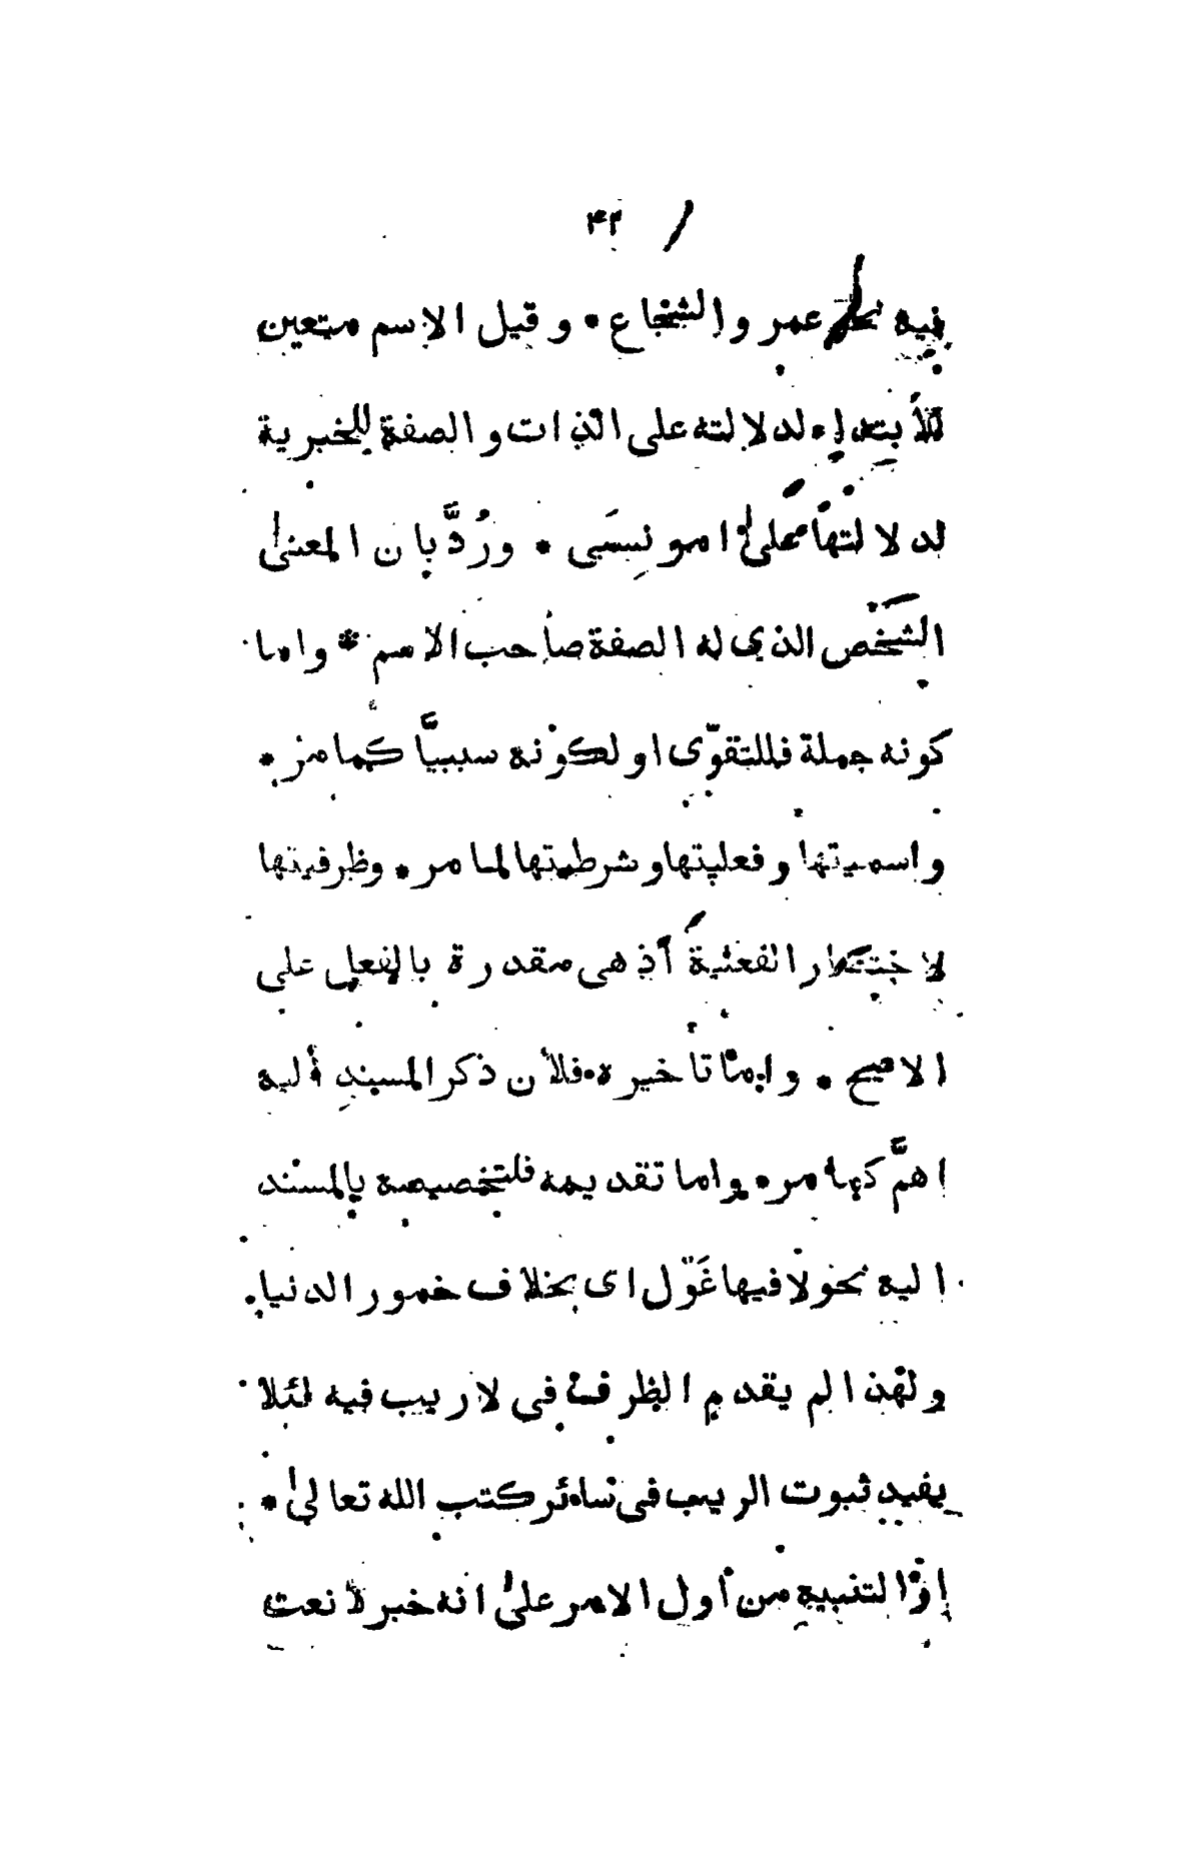 ٤٢
فيه نحو عمر والشجاع * وقيل الاسم متعين
للأبتداء لدلالته على الذات والصفة للخبرية
لدلالتها على امر نسبى * ورُدَّ بان المعنى
الشخص الذي له الصفة صاحب الاسم * واما
كونه جملة فللتقوّى او لكونه سببيًّا كما مر *
واسميتها وفعليتها وشرطيتها لما مر * وظرفيتها
لاختصار الفعلية أذ هى مقدرة بالفعل على
الاصح * واما تأخيره فلأن ذكر المسند أليه
اهمَّ كما مر * واما تقديمه فلتخصيصه بالمسند
اليه نحو لا فيها غَوْل اى بخلاف خمور الدنيا
ولهذا لم يقدم الظرف في لا ريب فيه لئلا
يفيد ثبوت الريب فى سائر كتب الله تعالىٰ *
او التنبيه من أول الامر علىٰ انه خبر لا نعت